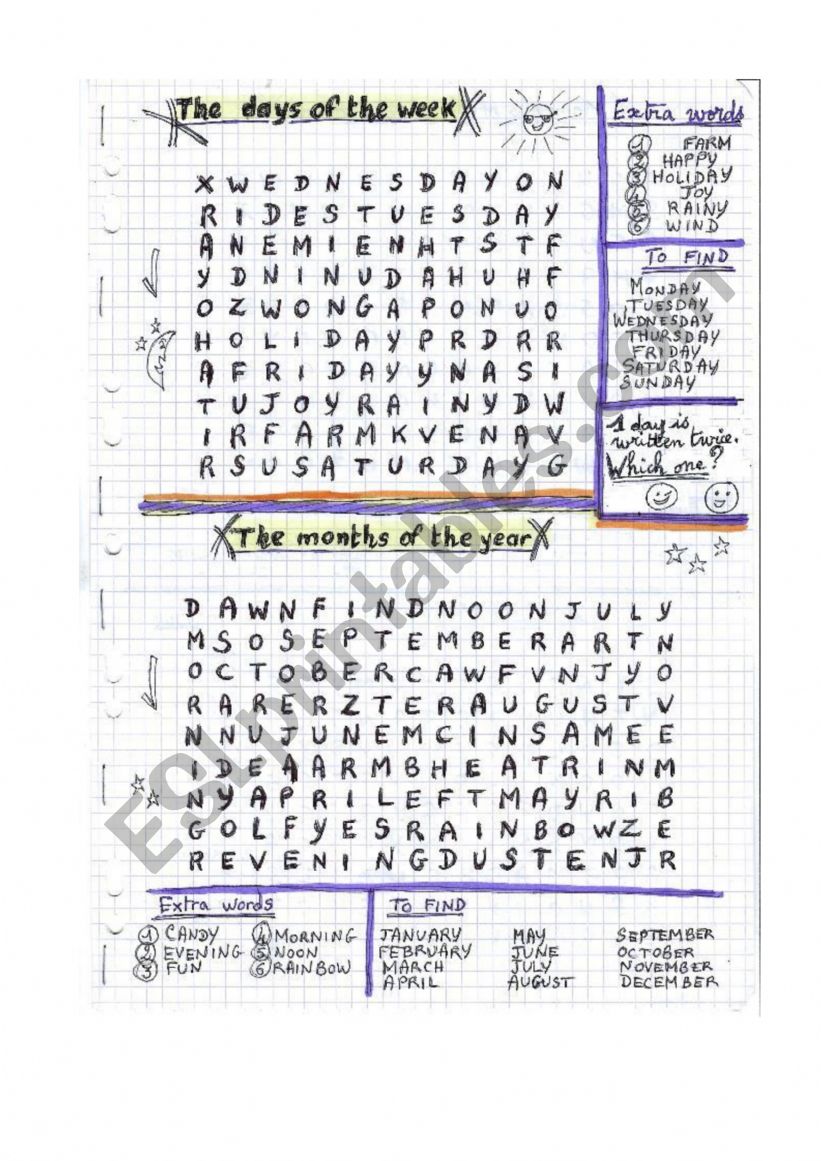 The days of the week
X W E D N E S D A Y O N
R I D E S T U E S D A Y
A N E M I E N H T S T F
Y D N I N U D A H U H F
O Z W O N G A P O N U O
H O L I D A Y P R D R R
A F R I D A Y Y N A S I
T U J O Y R A I N Y D W
I R F A R M K V E N A V
R S U S A T U R D A Y G
Extra words
1 FARM
2 HAPPY
3 HOLIDAY
4 JOY
5 RAINY
6 WIND
TO FIND
MONDAY
TUESDAY
WEDNESDAY
THURSDAY
FRIDAY
SATURDAY
SUNDAY
1 day is
written twice.
Which one?
The months of the year
D A W N F I N D N O O N J U L Y
M S O S E P T E M B E R A R T N
O C T O B E R C A W F V N J Y O
R A R E R Z T E R A U G U S T V
N N U J U N E M C I N S A M E E
I D E A A R M B H E A T R I N M
N Y A P R I L E F T M A Y R I B
G O L F Y E S R A I N B O W Z E
R E V E N I N G D U S T E N J R
Extra words
1 CANDY 4 MORNING
2 EVENING 5 NOON
3 FUN 6 RAINBOW
TO FIND
JANUARY MAY SEPTEMBER
FEBRUARY JUNE OCTOBER
MARCH JULY NOVEMBER
APRIL AUGUST DECEMBER
ESLprintables.com